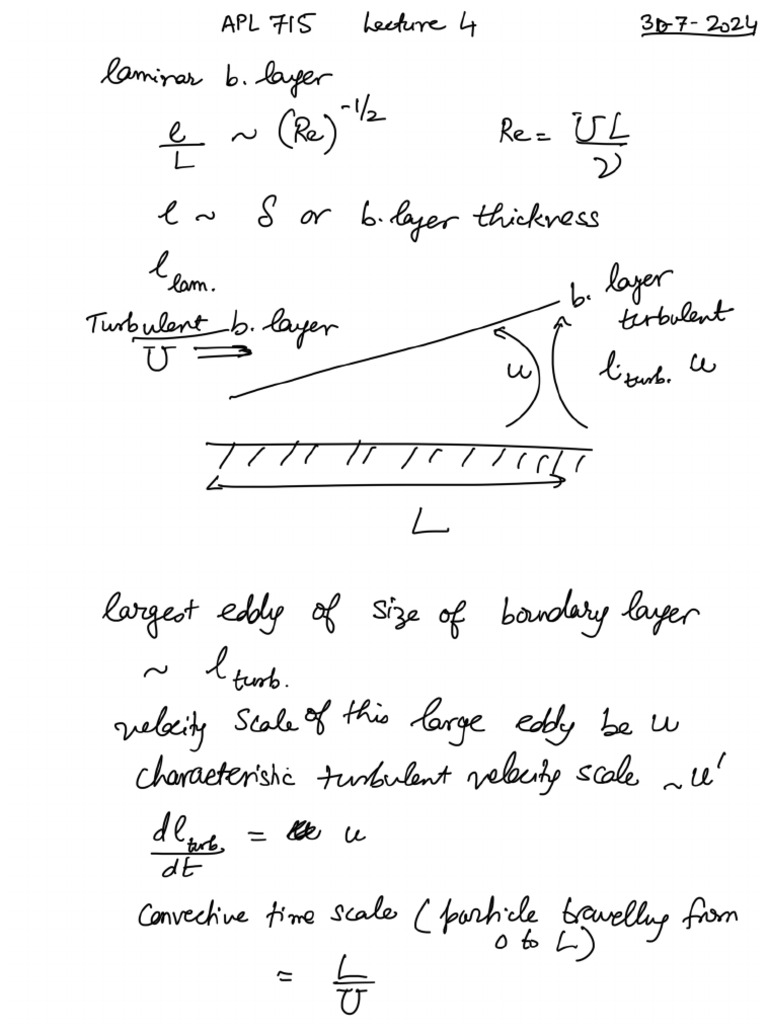 APL 715 Lecture 4 30-7-2024
laminar b. layer
l/L ~ (Re)^-1/2 Re = UL/ν
l ~ δ or b. layer thickness
l lam.
b. layer
turbulent
Turbulent b. layer
U
u
l turb. u
L
largest eddy of size of boundary layer
~ l turb.
velocity scale of this large eddy be u
characteristic turbulent velocity scale ~ u'
dl turb./dt = u
Convective time scale (particle travelling from
0 to L)
= L/U